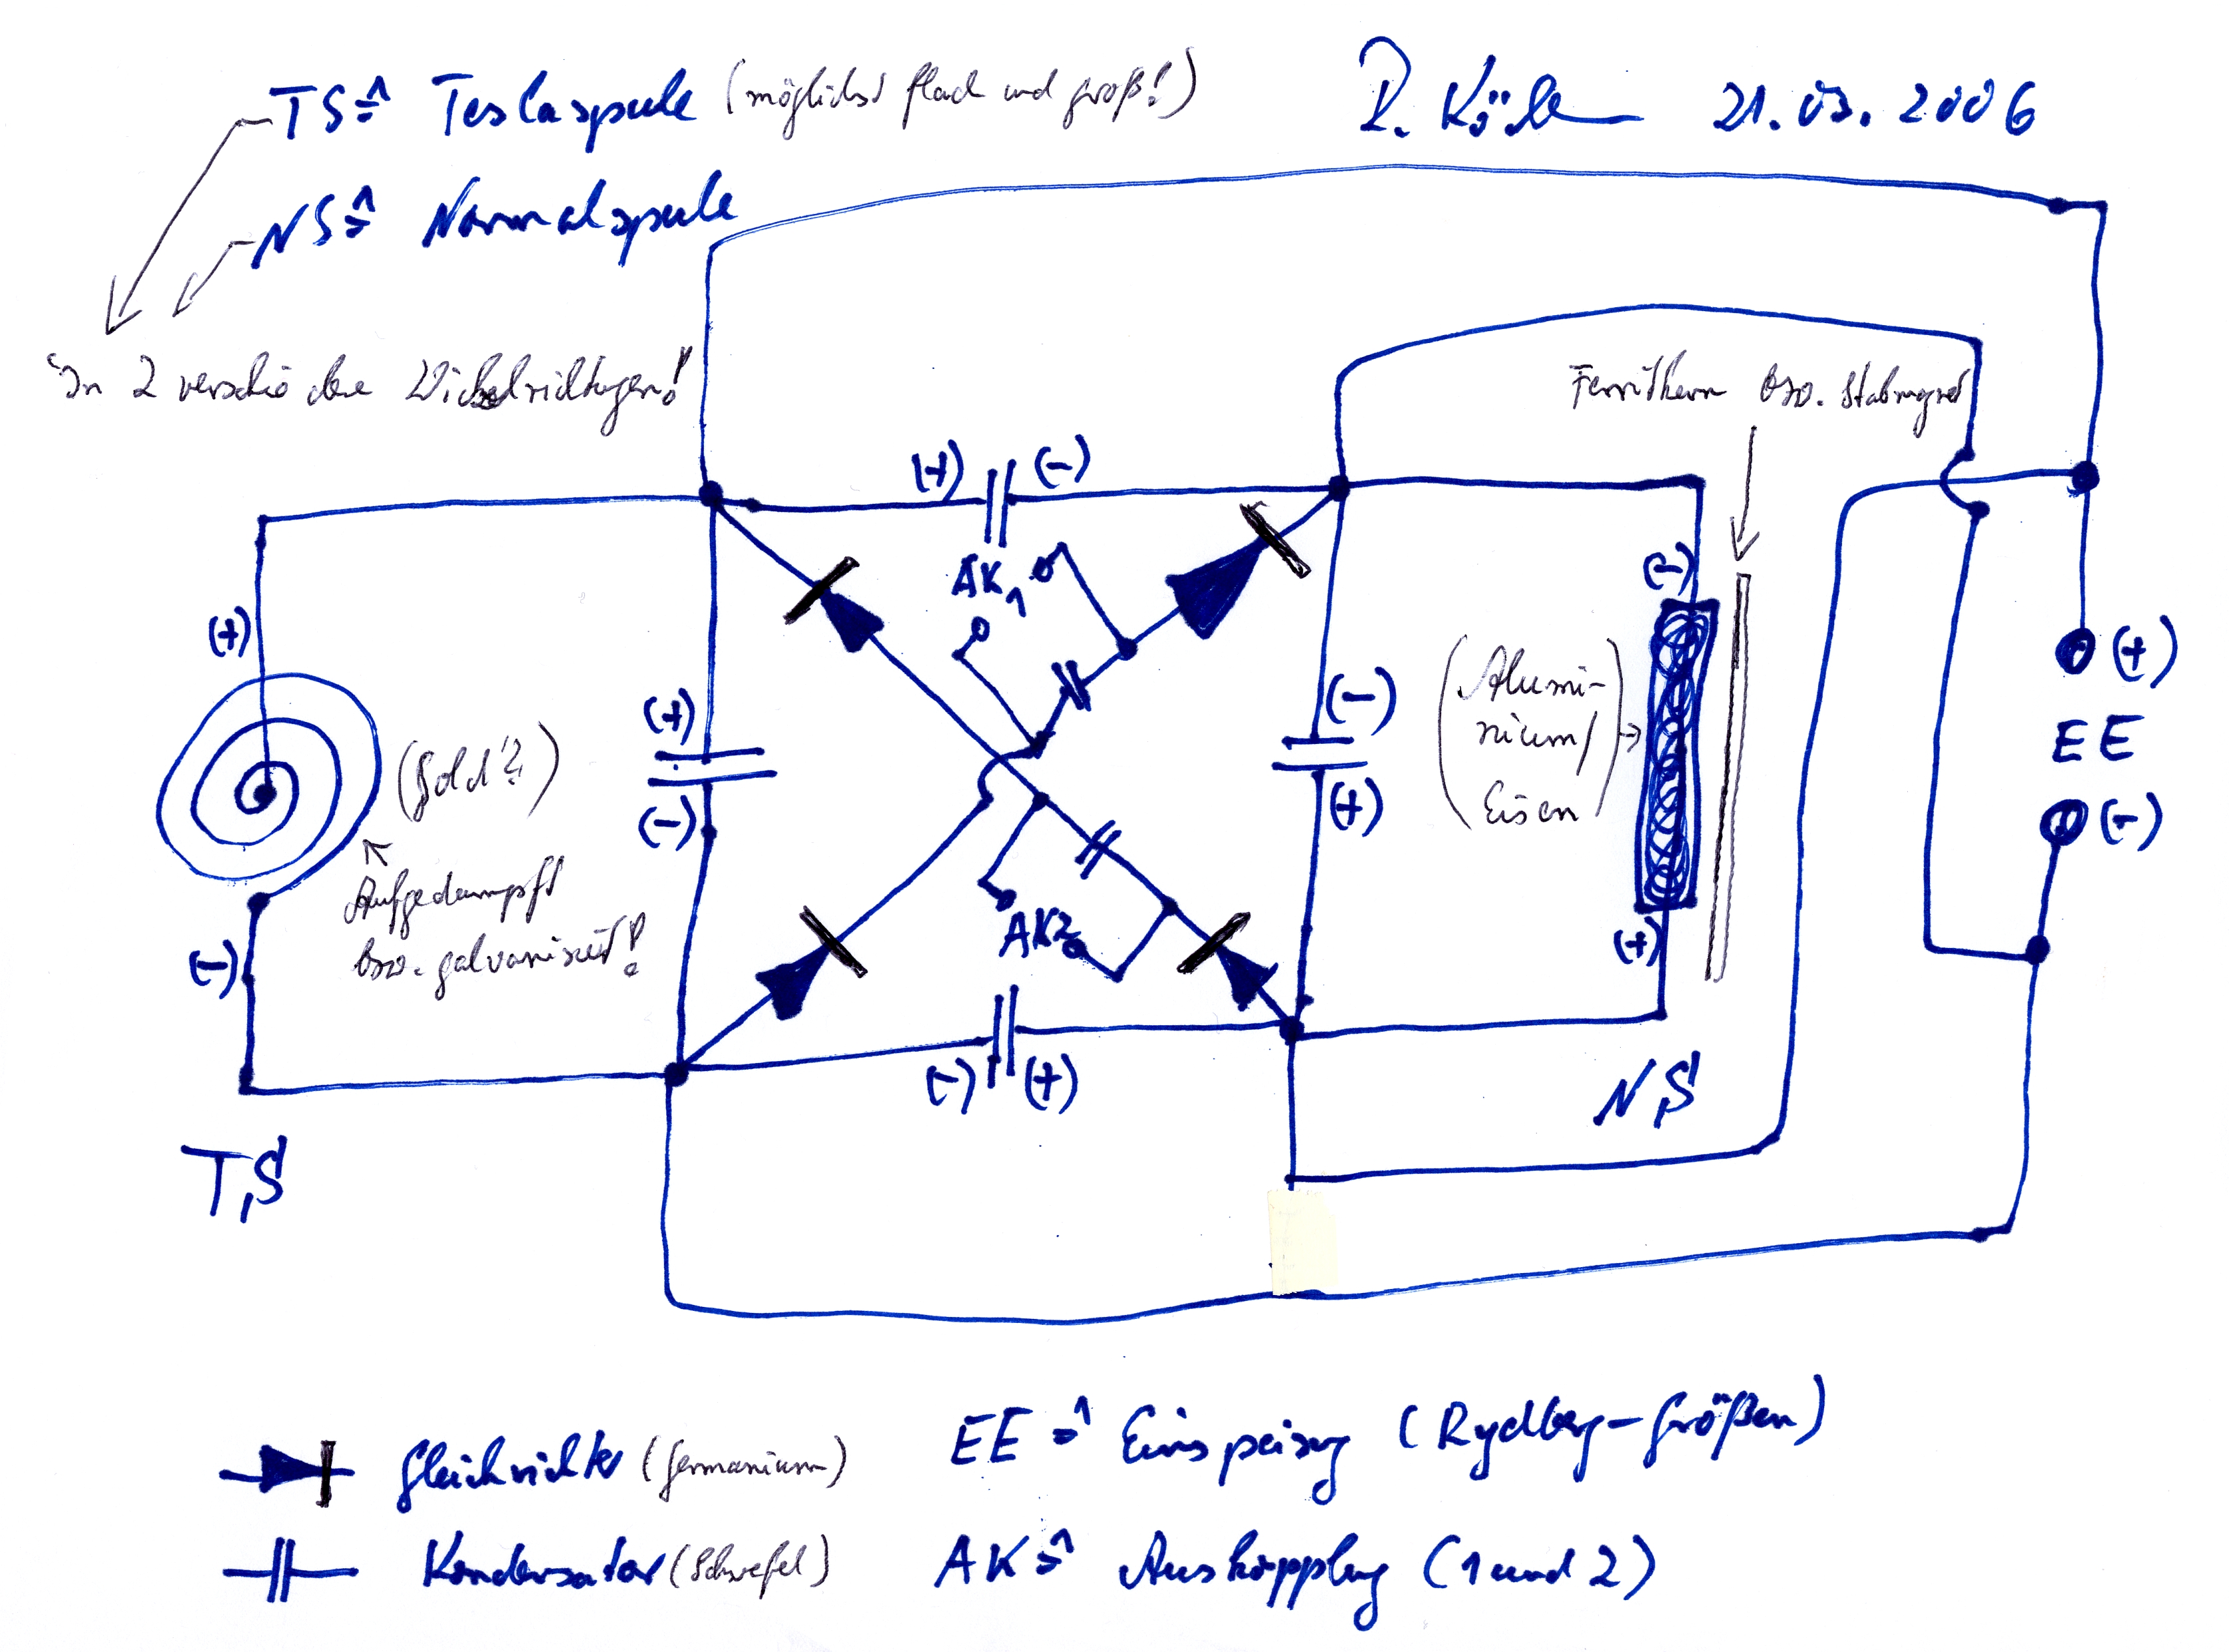 TS ≙ Teslaspule (möglichst flach und groß!)
21.03.2006
NS ≙ Normalspule
In 2 verschiedene Wickelrichtungen!
Ferritkern bzw. Stabmagnet
(+) (-)
AK1
(-)
(+)
(+)
(-)
(Gold?)
Aufgedampft
bzw. galvanisiert!
(-)
(-)
(+)
(Alumi-
nium/
Eisen)
(+)
EE
(-)
AK2
(+)
(-) (+)
NS
TS
Gleichrichter (Germanium)
EE ≙ Einspeisung (Rydberg-Größen)
Kondensator (Schwefel)
AK ≙ Auskopplung (1 und 2)